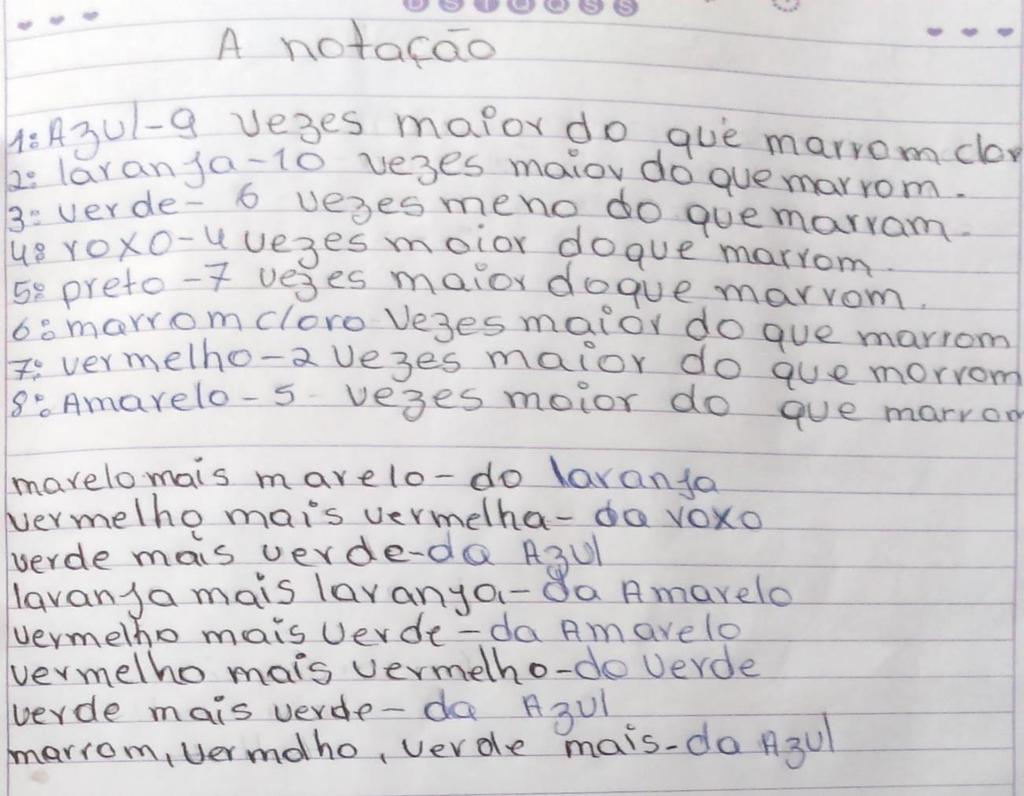 D S T Q Q S S
A notação
1: Azul-9 vezes maior do que marrom clar
2: laranja-10 vezes maior do que marrom.
3: verde- 6 vezes meno do que marram.
4: roxo-4 vezes maior do que marrom.
5: preto-7 vezes maior do que marrom.
6: marrom cloro vezes maior do que marrom
7: vermelho-2 vezes maior do que morrom
8: Amarelo-5- vezes maior do que marrom
marelo mais marelo-do laranja
vermelho mais vermelha-da roxo
verde mais verde-da Azul
laranja mais laranja-da Amarelo
vermelho mais verde-da Amarelo
vermelho mais vermelho-do verde
verde mais verde-da Azul
marrom, vermolho, verde mais-da Azul